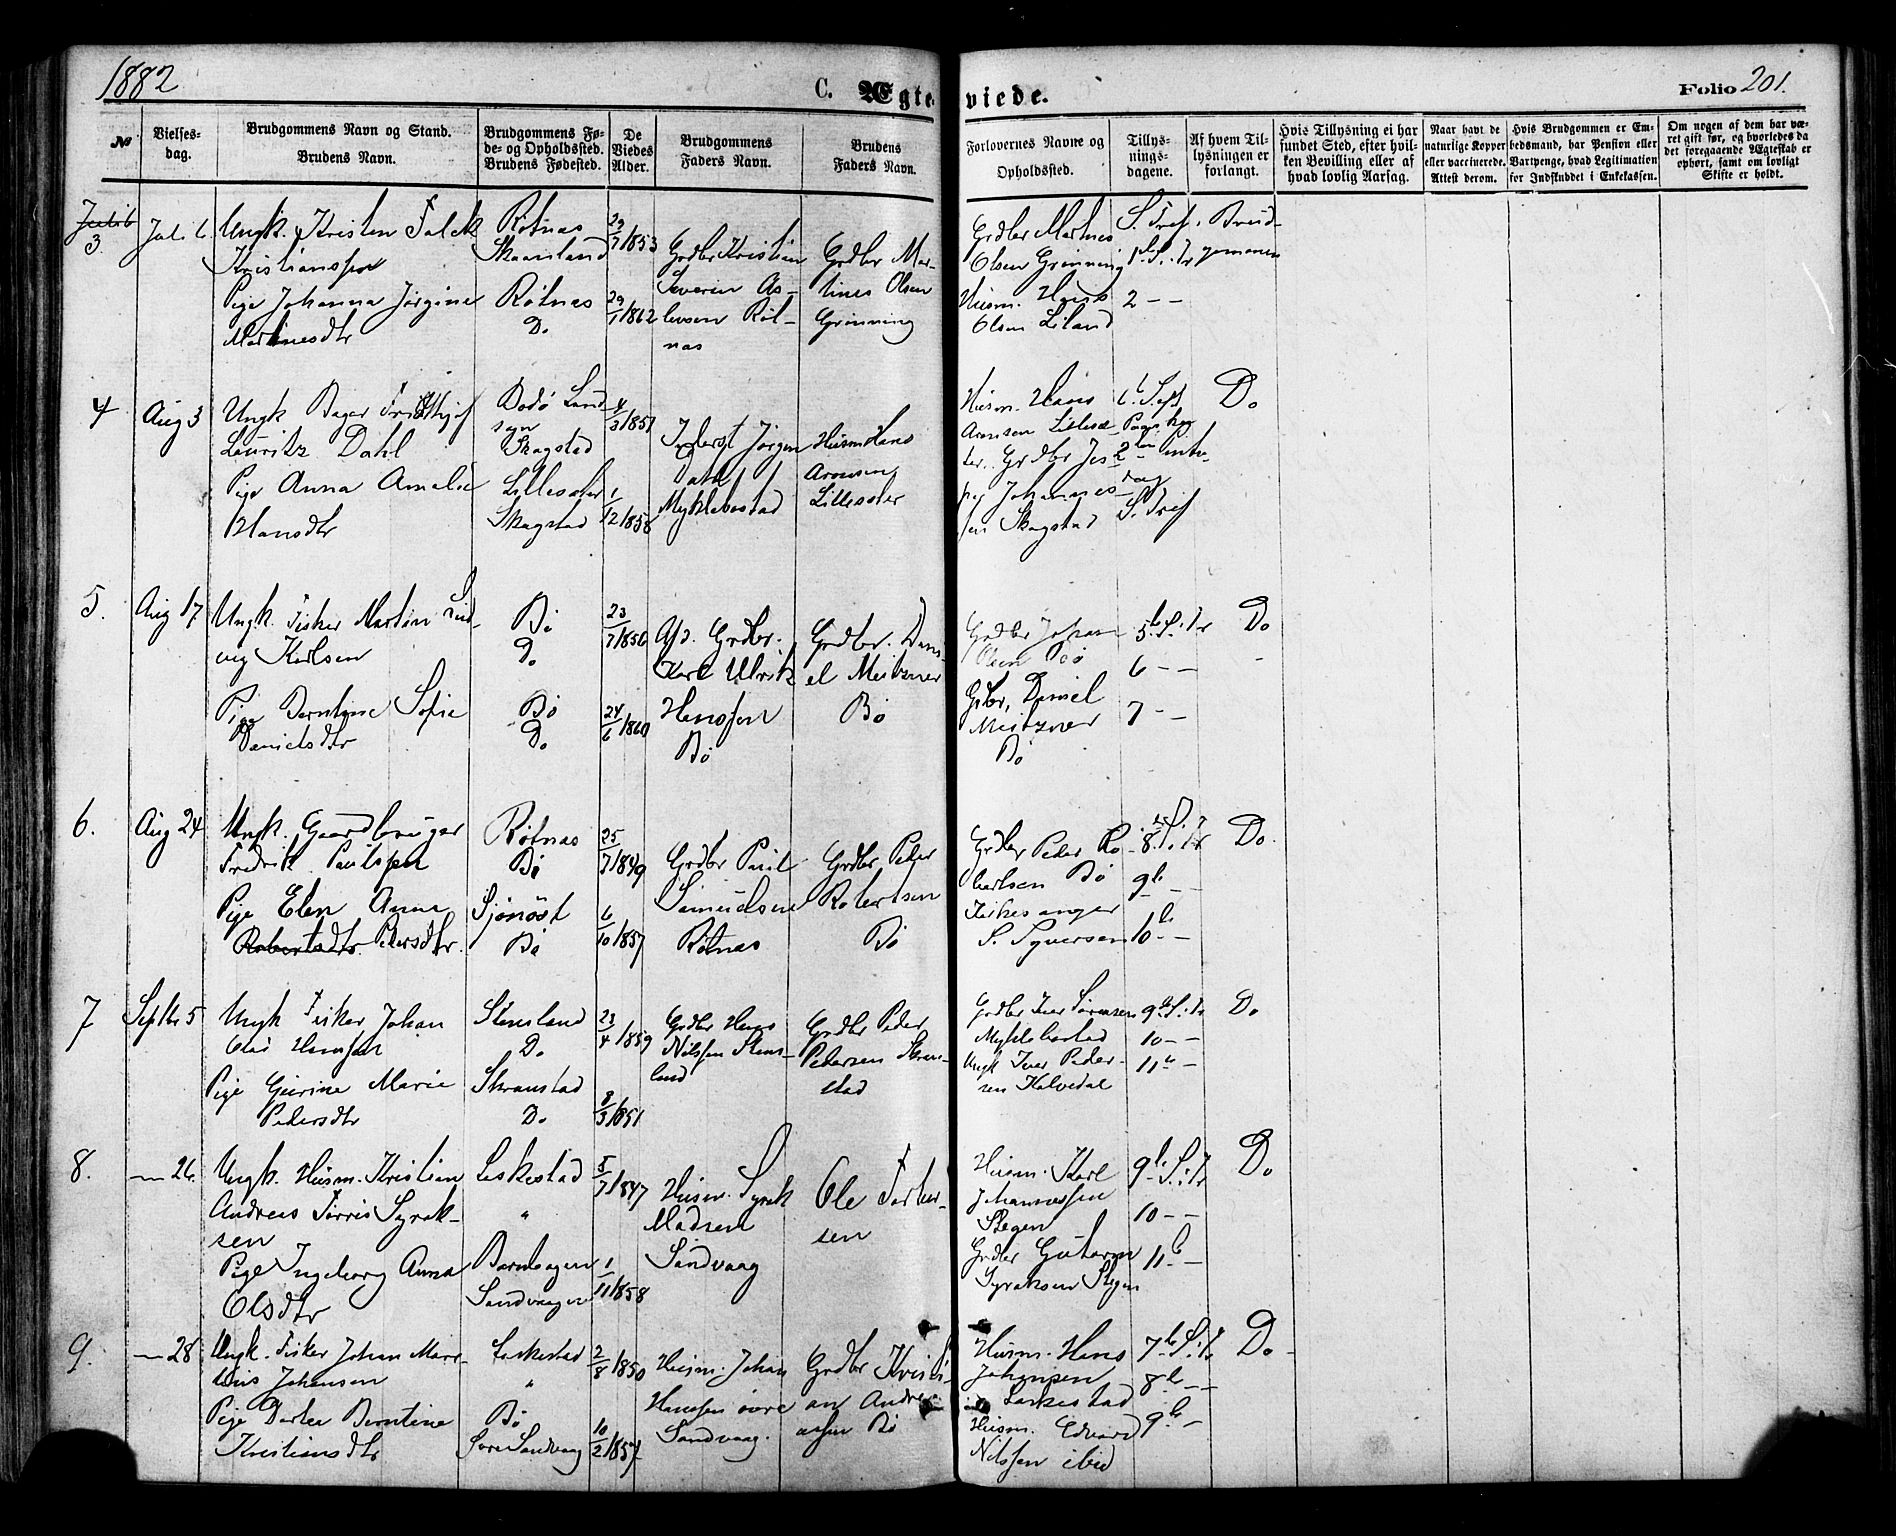 1882
C. Ægteviede.
Folio 201.
№
Vielsesdag.
Brudgommens Navn og Stand.
Brudens Navn.
Brudgommens Føde- og Opholdssted.
Brudens Fødested.
De Viedes Alder.
Brudgommens Faders Navn.
Brudens Faders Navn.
Forlovernes Navne og Opholdssted.
Tillysningsdagene.
Af hvem Tillysningen er forlangt.
Hvis Tillysning ei har fundet Sted, efter hvilken Bevilling eller af hvad lovlig Aarsag.
Naar havt de naturlige Kopper eller vaccinerede. Attest derom.
Hvis Brudgommen er Embedsmand, har Pension eller Vartpenge, hvad Legitimation for Indskuddet i Enkekassen.
Om nogen af dem har været gift før, og hvorledes da det foregaaende Ægteskab er ophørt, samt om lovligt Skifte er holdt.
3.
Juli 6
Ungk. Kristen Falck
Kristianssen
Pige Johanna Jørgine
Martinesdtr
Røtnes
Skaansland
Røtnes
Do
29/7 1853
29/1 1862
Grdbr Kristian
Severin
Røtnas
Grdbr Martines Olsen
Grønning
Grdbr Martines
Olsen Grønning
Husm. Hans
Olsen Liland
S. Tref.
2 – –
Brudgommen
4
Aug 3
Ungk Bager Fridthjof
Lauritz Dahl
Pige Anna Amalie
Hansdtr
Bodø Landsogn
Skagstad
Lillesæter
Skagstad
4/3 1851
1/12 1858
Jørgen
Dahl
Myklebostad
Husm Hans
Aronsen
Lillesæter
Husm. Hans
Aronsen Lillesæter. Grdbr
Johannessen Skagstad
S. Tref
Do
5.
Aug 17
Ungk. Fisker Martin Ludvig Karlsen
Pige Berntine Sofie
Danielsdtr
Bø
Do
Bø
Do
23/7 1856
24/6 1860
Afd. Grdbr.
Karl Ulrik
Hanssen
Bø
Grdbr. Daniel Meitzner
Bø
Grdbr Johan
Olsen Bø
Grdbr, Daniel
Meitzner
Bø
6 – –
7 – –
Do
6.
Aug 24
Ungk. Gaardbruger
Fredrik Paulssen
Pige Elen Anna
Robertsdtr. Pedersdtr.
Røtnas
Bø
Sjønøst
Bø
25/7 1849
6/10 1857
Grdbr Paul
Samuelsen
Røtnas
Grdbr. Peder
Robertsen
Bø
Grdbr Peder Robertsen Bø
Kirkesanger
S. Syversen
Do.
7
Septbr 5
Ungk Fisker Johan
Olai Hanssen
Pige Gurine Marie
Pedersdtr
Stensland
Do
Skranstad
Do
23/4 1859
8/3 1851
Grdbr Hans
Nilssen Stensland
Grdbr Peder
Pedersen Skranstad
Grdbr Iver Sørensen
Myklebostad
Ungk Iver Pedersen Kalvedal
10 – –
Do
8.
— 26
Ungk. Husm. Kristian
Andreas Tørris Syraksen
Pige Ingeborg Anna
Olsdtr
Laskestad
"
Sandvaagen
5/7 1847
1/11 1858
Husm. Syrak
Madsen
Sandvaag
Ole
Husm. Karl
Johannessen
Stegen
Grdbr Gutorm
Syraksen Stegen
10 – –
Do
9.
— 28
Ungk. Fisker Johan Martinus Johansen
Pige Dorthea Berntine
Kristiansdtr
Laskestad
"
Bø
Sandvaag
2/8 1850
10/2 1857
Husm. Johan
Hanssen øvre
Sandvaag.
Grdbr Kristian Andreassen Bø
Husm. Hans
Johansen
Laskestad
Husm. Edvard
Nilssen ibid
Do